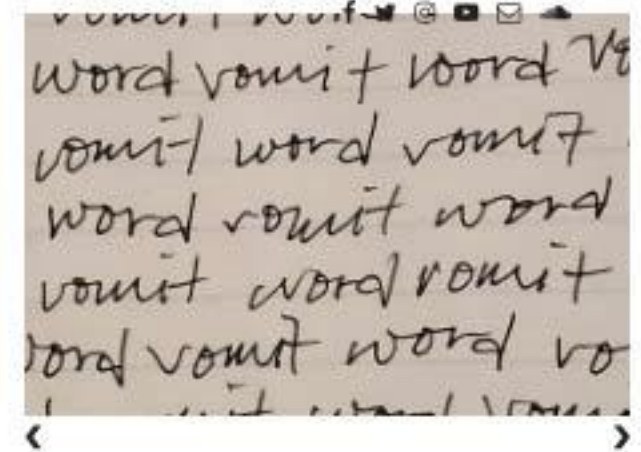 word vomit word
vomit word vomit
word vomit word
vomit word vomit
word vomit word vo